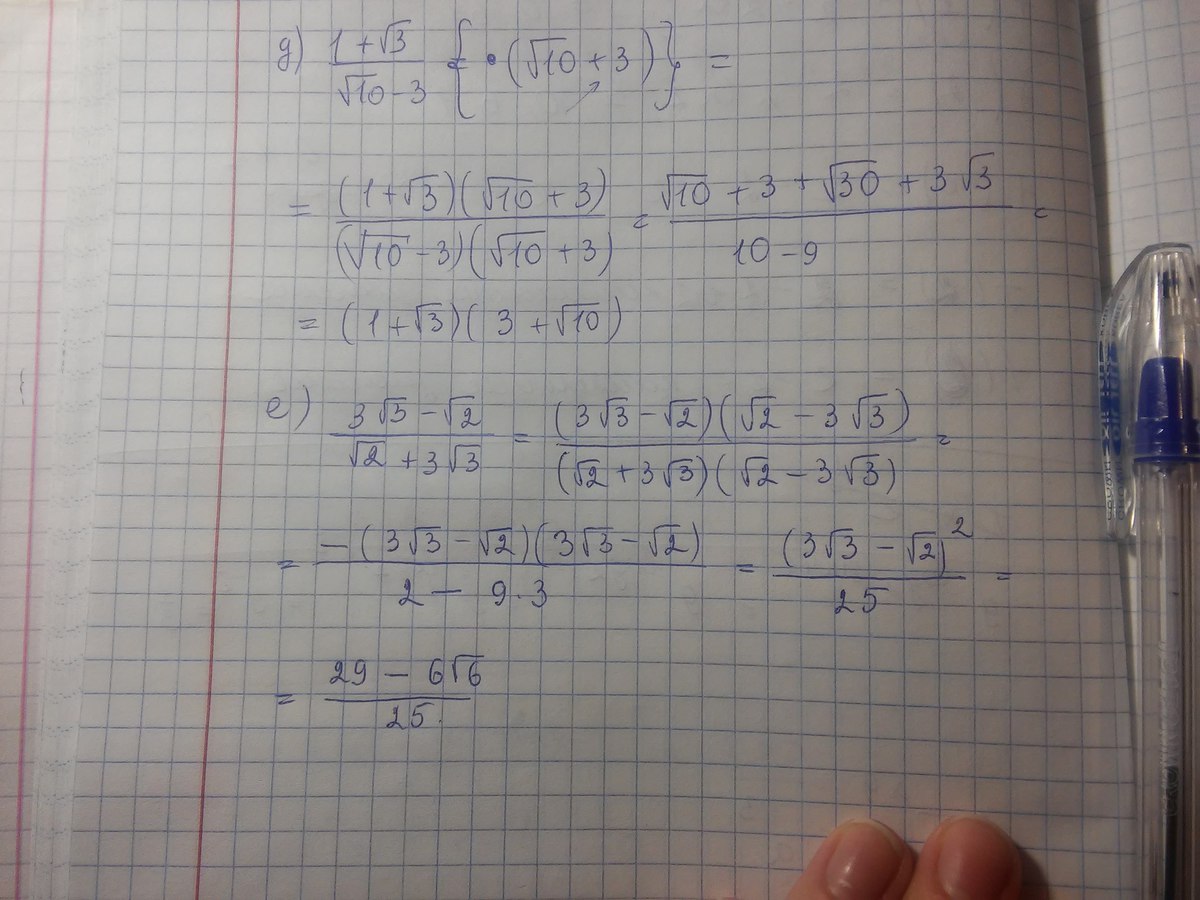 g) (1 + √3)/(√10 - 3) { • (√10 + 3) } =
= ((1 + √3)(√10 + 3))/((√10 - 3)(√10 + 3)) = (√10 + 3 + √30 + 3√3)/(10 - 9) =
= (1 + √3)(3 + √10)
е) (3√3 - √2)/(√2 + 3√3) = ((3√3 - √2)(√2 - 3√3))/((√2 + 3√3)(√2 - 3√3)) =
= (-(3√3 - √2)(3√3 - √2))/(2 - 9·3) = (3√3 - √2)²/25 =
= (29 - 6√6)/25.